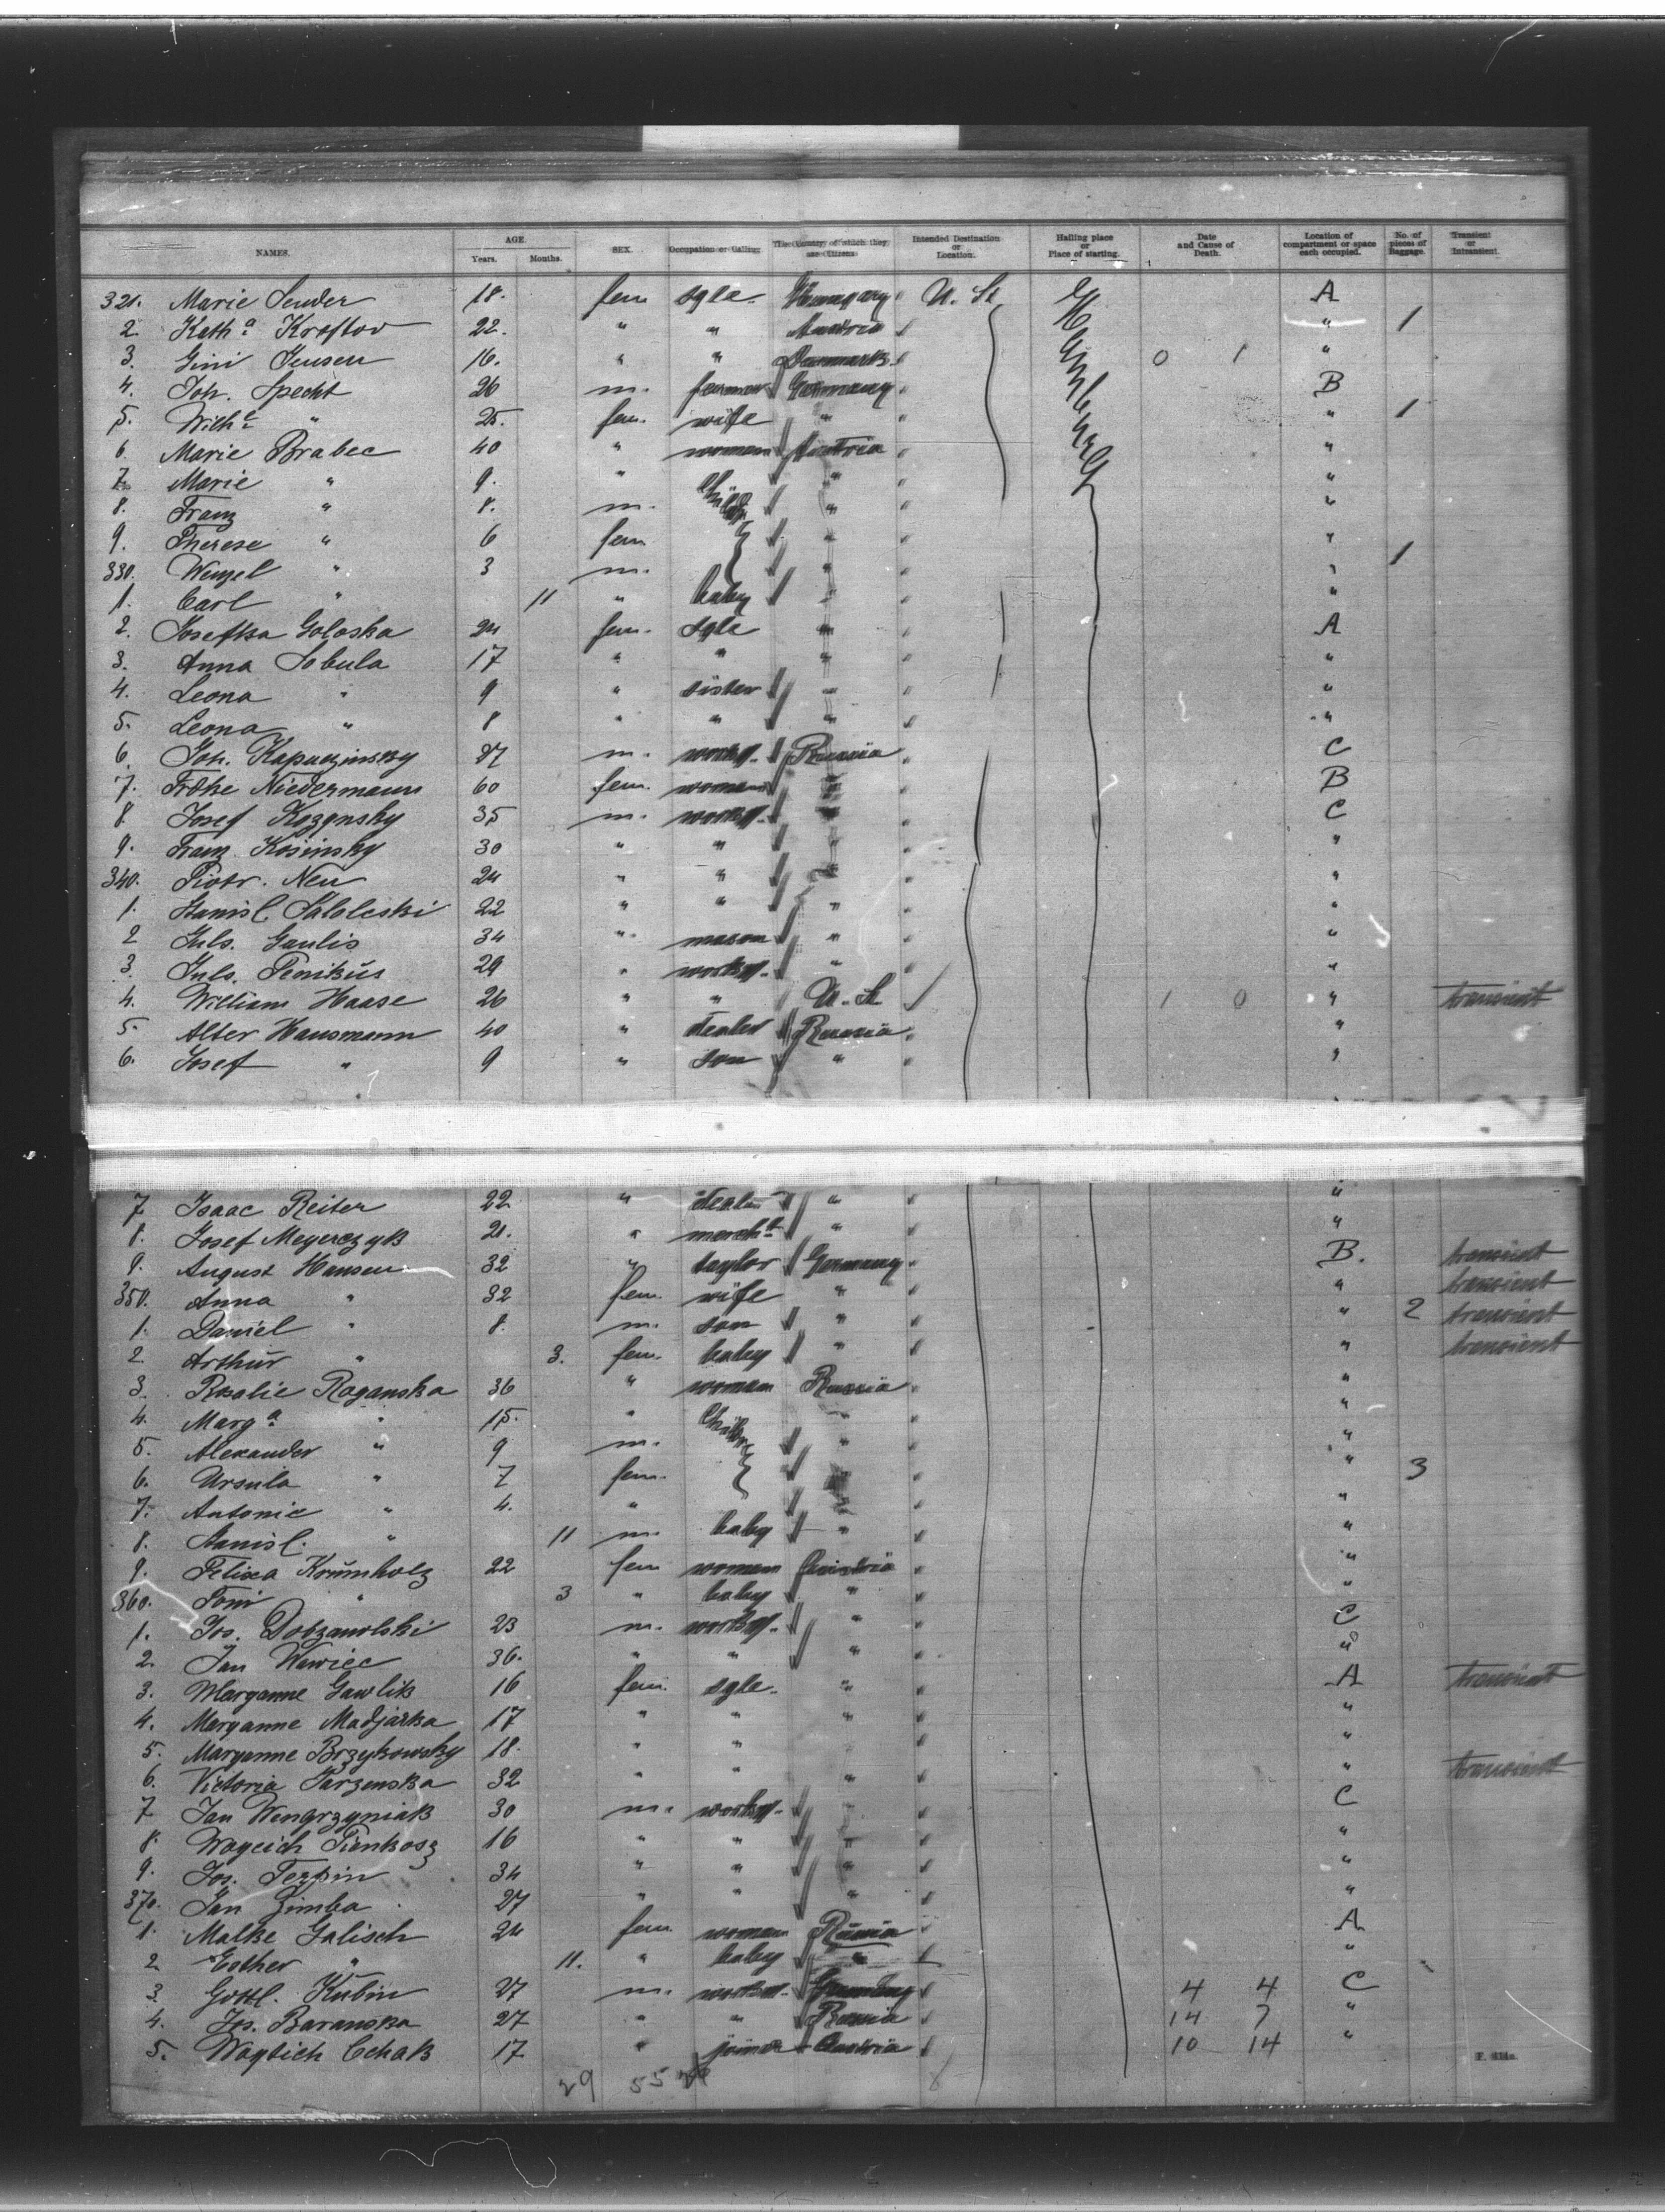 NAMES. AGE. Years. Months. SEX. Occupation or Calling. The Country of which they are Citizens Intended Destination or Location. Hailing place or Place of starting. Date and Cause of Death. Location of compartment or space each occupied. No. of pieces of Baggage. Transient or Intransient.
321. Marie Sender 18. fem sgle. Hungary U. St Hamburg A
2. Kath.a Kroftov 22. " " Austria " 1
3. Gini Jensen 16. " " Danmark 0 1 "
4. Joh. Specht 26 m. farmer Germany B
5. Wilh.e " 25. fem. wife " " 1
6. Marie Brabec 40 " woman Austria "
7. Marie " 9. " Childr. " "
8. Franz " 8. m. " "
9. Therese " 6 fem " "
330. Wenzel " 3 m. " " 1
1. Carl " 11 " baby " "
2. Josefka Goloska 24 fem. sgle " A
3. Anna Sobula 17 " " " "
4. Leona " 9 " sister " "
5. Leona " 8 " " " "
6. Joh. Kapuczinsky 27 m. workg. Russia C
7. Frdke Niedermann 60 fem. woman " B
8 Josef Kozynsky 35 m. workg. " C
9. Franz Kosinsky 30 " " " "
340. Piotr. Neu 24 " " " "
1. Stanisl. Saloleski 22 " " " "
2 Juls. Gaulis 34 " mason " "
3. Juls. Tenikus 29 " workg. " "
4. William Haase 26 " " U. St 1 0 " transient
5. Alter Hausmann 40 " dealer Russia "
6. Josef " 9 " son " "
7 Isaac Reiter 22 " dealer " "
8. Josef Meyerczyk 21. " merch.t " "
9. August Hansen 32 " taylor Germany B. transient
350. Anna " 32 fem. wife " " transient
1. Daniel " 8. m. son " " 2 transient
2 Arthur " 3. fem. baby " " transient
3. Rosalie Roganska 36 " woman Russia "
4. Marg.a " 15. " Childr. " "
5. Alexander " 9 m. " "
6. Ursula " 7 fem. " 3
7. Antonie " 4. " "
8. Stanisl. " 11 m. baby " "
9. Felixa Krumholz 22 fem woman Austria "
360. Toni " 3 " baby " "
1. Jos. Dobzanolski 23 m. workg. " C
2. Jan Wawiec 36. " " " "
3. Maryanne Gawlik 16 fem. sgle. " A transient
4. Maryanne Madjarka 17 " " " "
5. Maryanne Brzykowsky 18. " " "
6. Victoria Tarzenska 32 " " " " transient
7 Jan Wengrzyniak 30 m. workg. " C
8. Woyciech Pienkosz 16 " " " "
9. Jos. Terpin 34 " " " "
370. Jan Zimba 27 " " " "
1. Malke Galisch 24 fem. woman Russia A
2 Esther " 11. " baby " "
3. Gottl. Kubin 27 m. workg. Germany 4 4 C
4. Jos. Baranska 27 " " Russia 14 7 "
5. Woytich Cchak 17 " joiner Austria 10 14 "
29 55